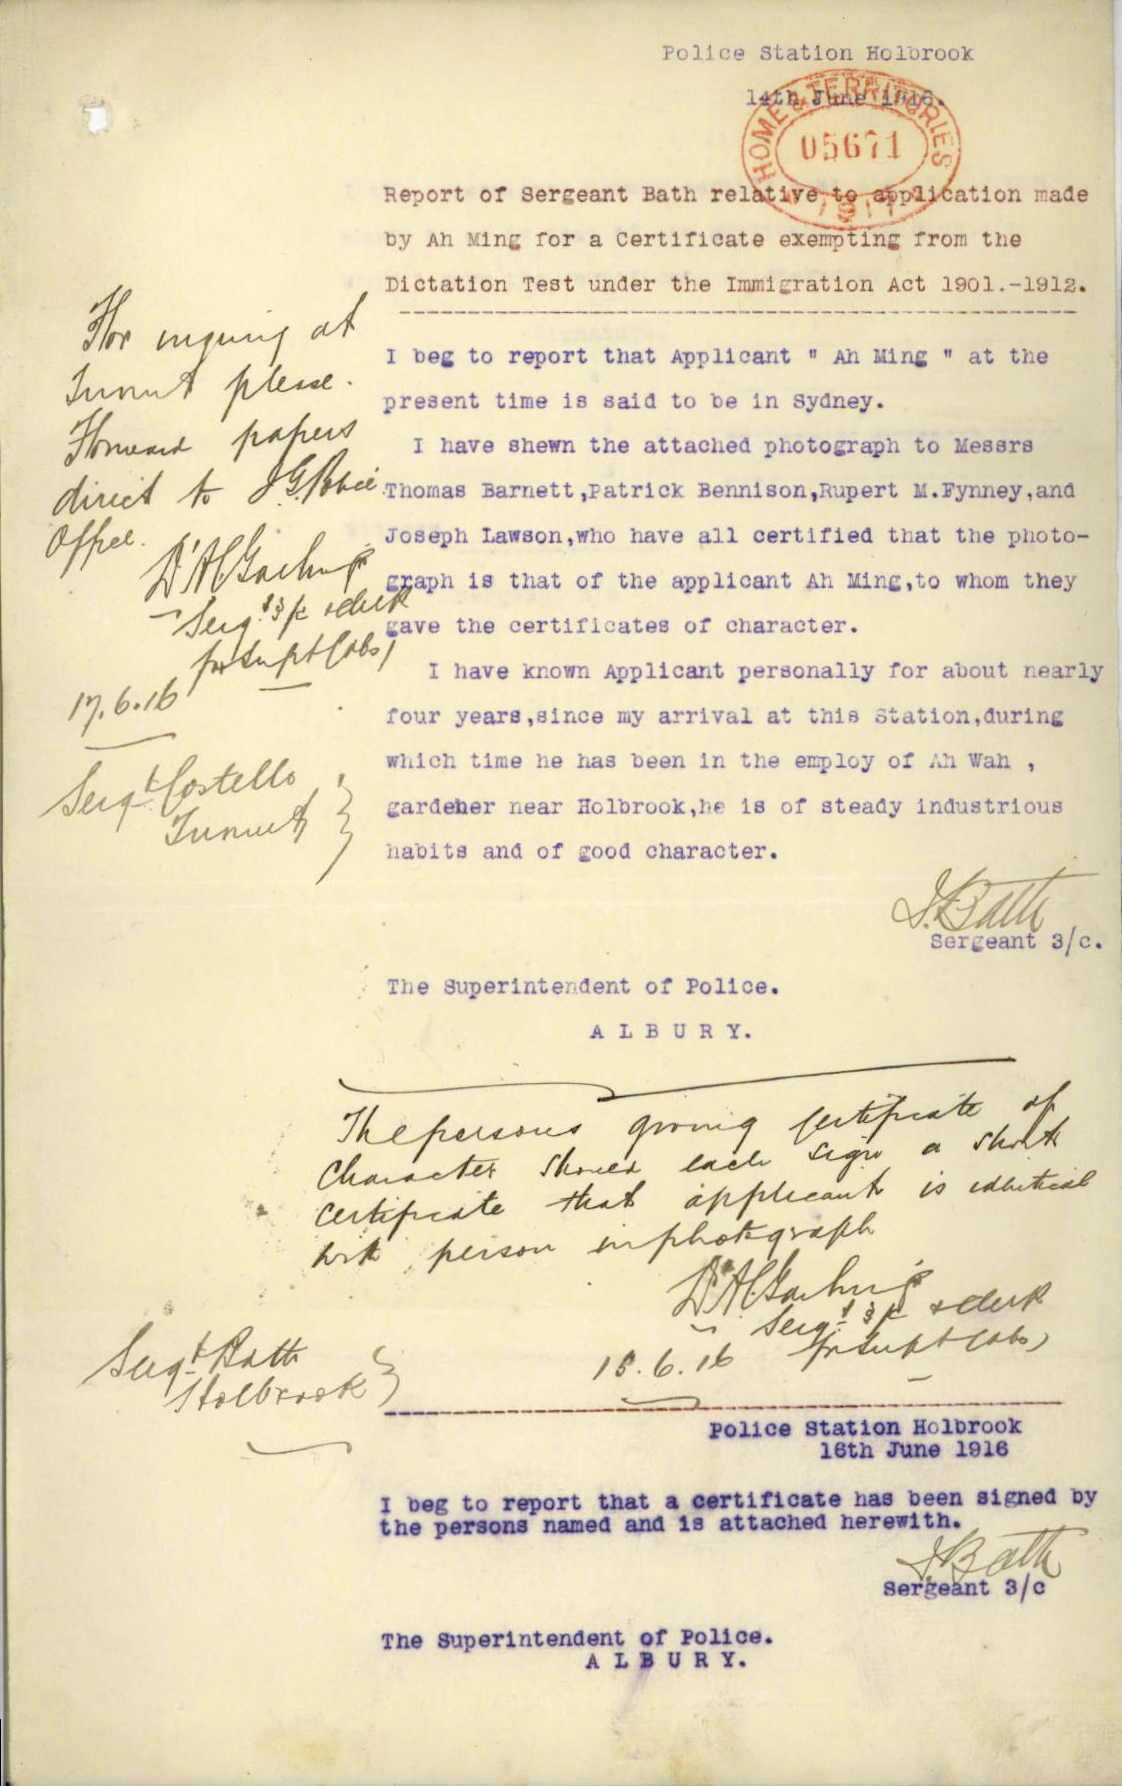 Police Station Holbrook
14th June 1916.
HOME & TERRITORIES
05671
1917
Report of Sergeant Bath relative to application made
by Ah Ming for a Certificate exempting from the
Dictation Test under the Immigration Act 1901.-1912.
I beg to report that Applicant " Ah Ming " at the
present time is said to be in Sydney.
I have shewn the attached photograph to Messrs
Thomas Barnett,Patrick Bennison,Rupert M.Fynney,and
Joseph Lawson,who have all certified that the photo-
graph is that of the applicant Ah Ming,to whom they
gave the certificates of character.
I have known Applicant personally for about nearly
four years,since my arrival at this Station,during
which time he has been in the employ of Ah Wah ,
gardener near Holbrook,he is of steady industrious
habits and of good character.
J.Bath
Sergeant 3/c.
The Superintendent of Police.
A L B U R Y.
For inquiry at
Tumut please.
Forward papers
direct to I.G. Police
Office.
Sergt 3/c & clerk
for Supt (abs)
17.6.16
Sergt Costello
Tumut
The persons giving certificate of
character should each sign a short
certificate that applicant is identical
with person in photograph
Sergt 3/c & clerk
for Supt (abs)
15.6.16
Sergt Bath
Holbrook
Police Station Holbrook
16th June 1916
I beg to report that a certificate has been signed by
the persons named and is attached herewith.
J.Bath
Sergeant 3/c
The Superintendent of Police.
A L B U R Y.